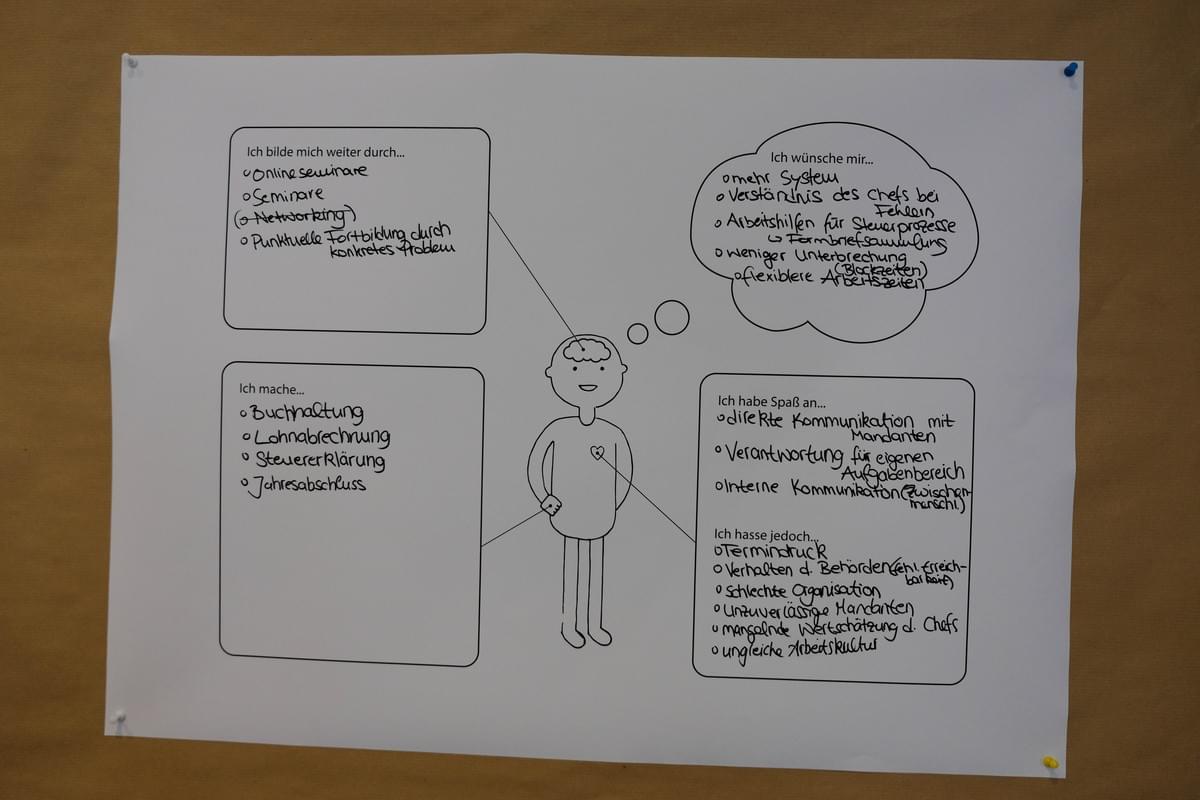 Ich bilde mich weiter durch...
o Onlineseminare
o Seminare
(o Networking)
o Punktuelle Fortbildung durch
konkretes Problem
Ich wünsche mir...
o mehr System
o Verständnis des Chefs bei
Fehlern
o Arbeitshilfen für Steuerprozesse
↳ Formbriefsammlung
o weniger Unterbrechung
(Blockzeiten)
o flexiblere Arbeitszeiten
Ich mache...
o Buchhaltung
o Lohnabrechnung
o Steuererklärung
o Jahresabschluss
Ich habe Spaß an...
o direkte Kommunikation mit
Mandanten
o Verantwortung für eigenen
Aufgabenbereich
o Interne Kommunikation (zwischen-
menschl.)
Ich hasse jedoch...
o Termindruck
o Verhalten d. Behörden (fehl. Erreich-
barkeit)
o schlechte Organisation
o unzuverlässige Mandanten
o mangelnde Wertschätzung d. Chefs
o ungleiche Arbeitskultur